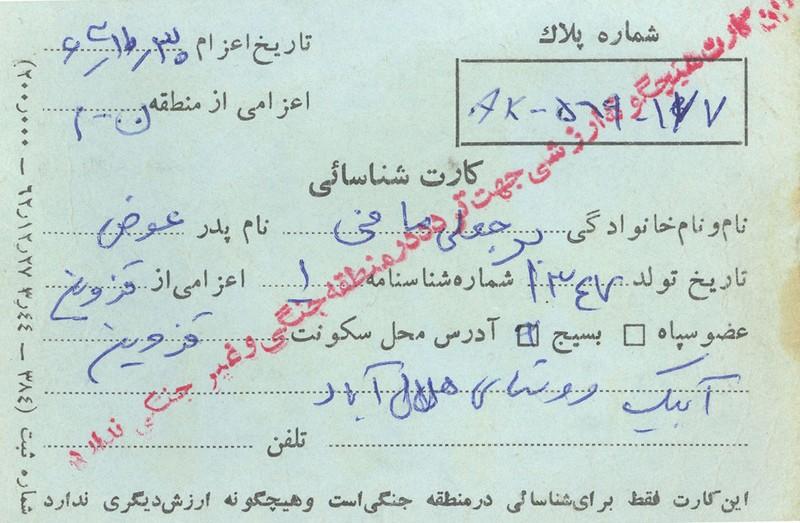 شماره پلاك
AK-569-177
تاریخ اعزام
اعزامی از منطقه
کارت شناسائی
نام و نام خانوادگی رجبعلی صافی نام پدر عوض
تاریخ تولد ۱۳٤۷ شماره شناسنامه ۱ اعزامی از قزوین
عضو سپاه □ بسیج □ آدرس محل سکونت قزوین
آبیک روستای هلال آباد
تلفن
این کارت فقط برای شناسائی در منطقه جنگی است و هیچگونه ارزش دیگری ندارد
کارت هیچگونه ارزشی جهت تردد در منطقه جنگی و غیر جنگی ندارد
شماره ثبت (۳۸٤ — ۳٫٤٤ ۶۲٫۱۲٫۲۷ — ۲۰۰٫۰۰۰)